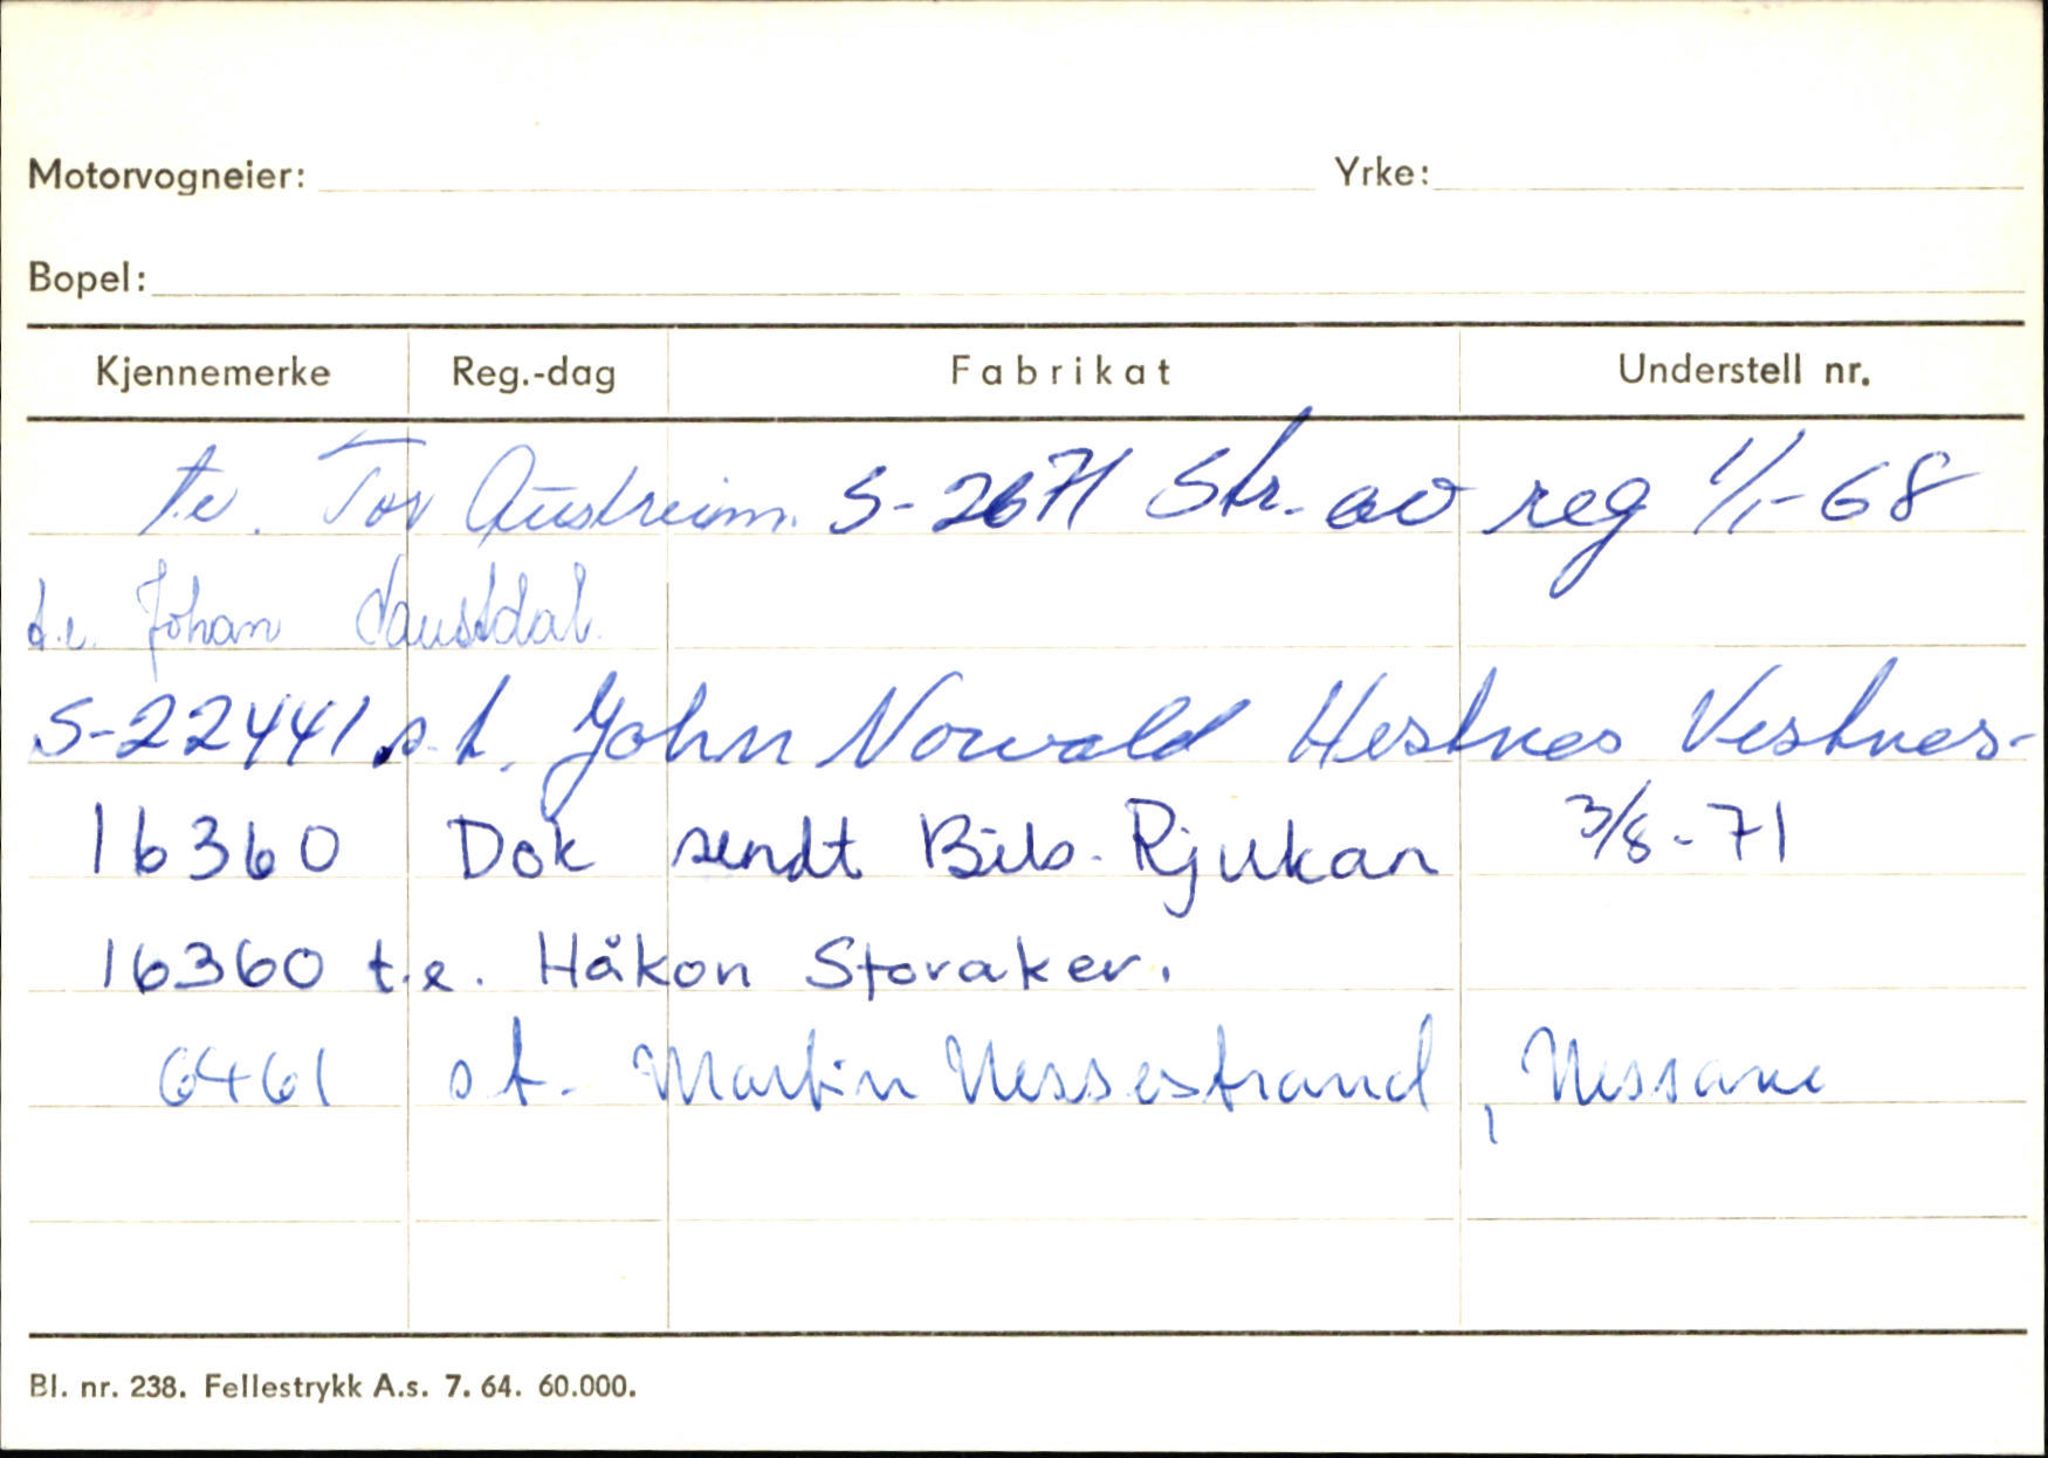 Motorvogneier: Yrke:
Bopel:
Kjennemerke Reg.-dag Fabrikat Understell nr.
t.e. Tor Austreim. S-2671 Str. av reg 1/1-68
t.e. Johan Naustdal.
S-22441 s.t. John Norvald Hestnes Vestnes-
16360 Dok sendt Bils. Rjukan 3/8-71
16360 t.e. Håkon Storaker.
6461 s t. Martin Nessestrand, Nessane
Bl. nr. 238. Fellestrykk A.s. 7. 64. 60.000.